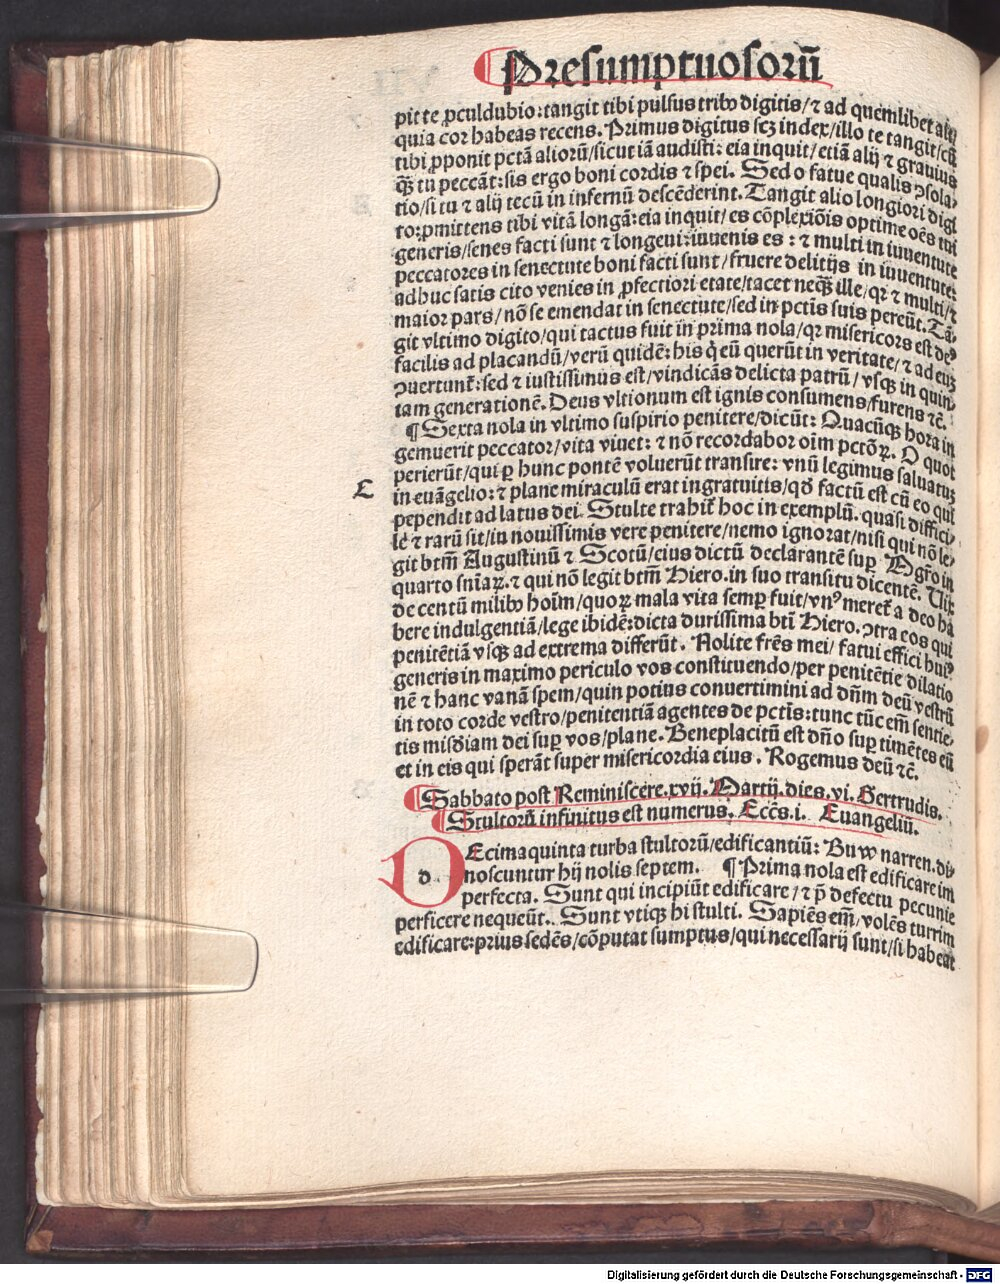 ¶ Presumptuosorū
pit te ꝓculdubio: tangit tibi pulsus tribꝰ digitis/ ⁊ ad quemlibet ait/
quia cor habeas recens. Primus digitus scꝫ index/ illo te tangit/ cū
tibi ꝓponit pctā aliorū/ sicut iā audisti: eia inquit/ etiā alij ⁊ grauius
qꝫ̄ tu peccāt: sis ergo boni cordis ⁊ spei. Sed o fatue qualis ꝯsola⸗
tio/ si tu ⁊ alij tecū in infernū descēderint. Tangit alio longiori digi
to: ꝓmittens tibi vitā longā: eia inquit/ es cōplexiōis optime oēs tui
generis/ senes facti sunt ⁊ longeui: iuuenis es: ⁊ multi in iuuentute
peccatores in senectute boni facti sunt/ fruere delitijs in iuuentute:
adhuc satis cito venies in ꝓfectiori etate/ tacet neqꝫ ille/ qꝛ ⁊ multi/ ⁊
maior pars/ nō se emendat in senectute/ sed in pctīs suis pereūt. Tā⸗
git vltimo digito/ qui tactus fuit in prima nola/ qꝛ misericors est deꝰ
facilis ad placandū/ verū quidē: his q̇ eū querūt in veritate/ ⁊ ad euꝫ
ꝯuertunt̃: sed ⁊ iustissimus est/ vindicās delicta patrū/ vsqꝫ in quin⸗
tam generationē. Deus vltionum est ignis consumens/ furens ⁊c̄.
¶ Sexta nola in vltimo suspirio penitere/ dicūt: Quacūqꝫ hora in
gemuerit peccator/ vita viuet: ⁊ nō recordabor oīm pctōꝝ. O quot
perierūt/ qui ꝑ hunc pontē voluerūt transire: vnū legimus saluatuꝫ
E
in euāgelio: ⁊ plane miraculū erat ingratuitis/ qđ factū est cū eo qui
pependit ad latus dei. Stulte trahit̃ hoc in exemplū. quasi diffici⸗
le ⁊ rarū sit/ in nouissimis vere penitere/ nemo ignorat/ nisi qui nō le⸗
git btm̄ Augustinū ⁊ Scotū/ eius dictū declarantē suꝑ Mgr̄o in
quarto sn̄iaꝝ. ⁊ qui nō legit btm̄ Hiero. in suo transitu dicentē. Uix
de centū milibꝰ hoīm/ quoꝝ mala vita semꝑ fuit/ vnꝰ meret̃ a deo ha
bere indulgentiā/ lege ibidē: dicta durissima btī Hiero. ꝯtra eos qui
penitētiā vsqꝫ ad extrema differūt. Nolite frēs mei/ fatui effici huiꝰ
generis in maximo periculo vos constituendo/ per penitētie dilatio
nē ⁊ hanc vanā spem/ quin potius conuertimini ad dn̄m deū vestrū
in toto corde vestro/ penitentiā agentes de pctīs: tunc tūc em̄ sentie⸗
tis misōiam dei suꝑ vos/ plane. Beneplacitū est dn̄o suꝑ timētes eū
et in eis qui sperāt super misericordia eius. Rogemus deū ⁊c̄.
¶ Sabbato post Reminiscere. xvij. Martij. dies. vi. Gertrudis.
¶ Stultorū infinitus est numerus. Eccēs. i. Euangeliū.
dEcimaquinta turba stultorū/ edificantiū: Buw narren. di⸗
noscuntur hij nolis septem. ¶ Prima nola est edificare im
perfecta. Sunt qui incipiūt edificare/ ⁊ p̄ defectu pecunie
perficere nequeūt. Sunt vtiqꝫ hi stulti. Sapiēs em̄/ volēs turrim
edificare: prius sedēs/ cōputat sumptus/ qui necessarij sunt/ si habeat
Digitalisierung gefördert durch die Deutsche Forschungsgemeinschaft - DFG